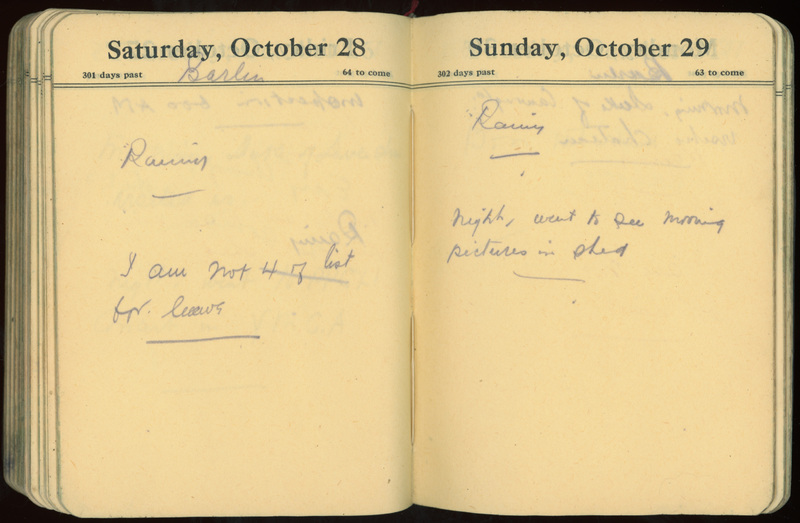 Saturday, October 28
301 days past
Barlin
64 to come
Raining
I am not 4 of list
for leave
Sunday, October 29
302 days past
63 to come
Rainy
Night, went to see moving
pictures in shed